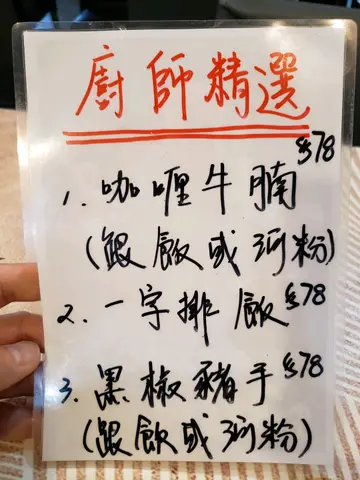 廚師精選
1. 咖喱牛腩 $78
(跟飯或河粉)
2. 一字排飯 $78
3. 黑椒豬手 $78
(跟飯或河粉)